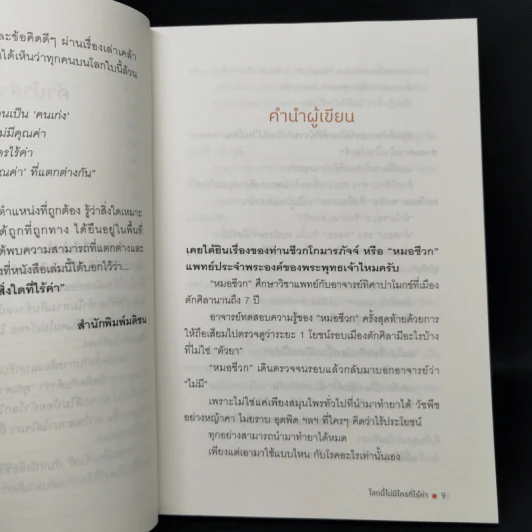 ละข้อคิดดีๆ ผ่านเรื่องเล่าเคล้า
ได้เห็นว่าทุกคนบนโลกใบนี้ล้วน
นเป็น 'คนเก่ง'
ไม่มีคุณค่า
ครไร้ค่า
คุณค่า' ที่แตกต่างกัน"
ตำแหน่งที่ถูกต้อง รู้ว่าสิ่งใดเหมาะ
ได้ถูกที่ถูกทาง ได้ยืนอยู่ในพื้นที่
ได้พบความสามารถที่แตกต่างและ
งที่หนังสือเล่มนี้ได้บอกไว้ว่า...
สิ่งใดที่ไร้ค่า"
สำนักพิมพ์มติชน
คำนำผู้เขียน
เคยได้ยินเรื่องของท่านชีวกโกมารภัจจ์ หรือ "หมอชีวก"
แพทย์ประจำพระองค์ของพระพุทธเจ้าไหมครับ
"หมอชีวก" ศึกษาวิชาแพทย์กับอาจารย์ทิศาปาโมกข์ที่เมือง
ตักศิลานานถึง 7 ปี
อาจารย์ทดสอบความรู้ของ "หมอชีวก" ครั้งสุดท้ายด้วยการ
ให้ถือเสียมไปตรวจดูว่าระยะ 1 โยชน์รอบเมืองตักศิลามีอะไรบ้าง
ที่ไม่ใช่ "ตัวยา"
"หมอชีวก" เดินตรวจจนรอบแล้วกลับมาบอกอาจารย์ว่า
"ไม่มี"
เพราะไม่ใช่แค่เพียงสมุนไพรทั่วไปที่นำมาทำยาได้ วัชพืช
อย่างหญ้าคา ไมยราบ อุตพิด ฯลฯ ที่ใครๆ คิดว่าไร้ประโยชน์
ทุกอย่างสามารถนำมาทำยาได้หมด
เพียงแต่เอามาใช้แบบไหน กับโรคอะไรเท่านั้นเอง
โลกนี้ไม่มีใครที่ไร้ค่า • 9